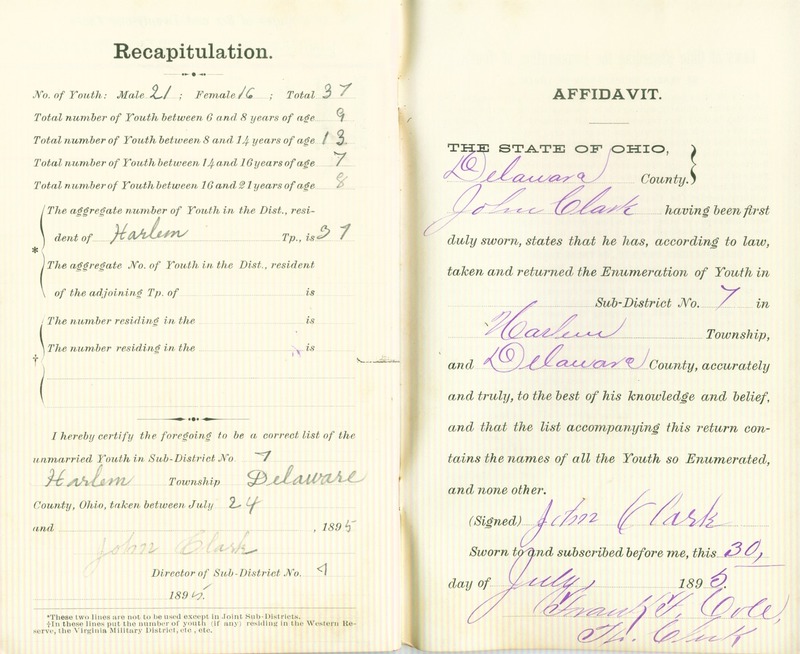 Recapitulation.
No. of Youth: Male 21; Female 16; Total 37
Total number of Youth between 6 and 8 years of age 9
Total number of Youth between 8 and 14 years of age 13
Total number of Youth between 14 and 16 years of age 7
Total number of Youth between 16 and 21 years of age 8
The aggregate number of Youth in the Dist., resi-
* dent of Harlem Tp., is 37
The aggregate No. of Youth in the Dist., resident
of the adjoining Tp. of is
The number residing in the is
† The number residing in the is
I hereby certify the foregoing to be a correct list of the
unmarried Youth in Sub-District No. 7
Harlem Township Delaware
County, Ohio, taken between July 24
and , 1895
John Clark
Director of Sub-District No. 7
1895.
*These two lines are not to be used except in Joint Sub-Districts.
†In these lines put the number of youth (if any) residing in the Western Re-
serve, the Virginia Military District, etc., etc.
AFFIDAVIT.
THE STATE OF OHIO,
Delaware County.
John Clark having been first
duly sworn, states that he has, according to law,
taken and returned the Enumeration of Youth in
Sub-District No. 7 in
Harlem Township,
and Delaware County, accurately
and truly, to the best of his knowledge and belief,
and that the list accompanying this return con-
tains the names of all the Youth so Enumerated,
and none other.
(Signed) John Clark
Sworn to and subscribed before me, this 30,
day of July, 1895.
Frank F. Cole,
Tp. Clerk